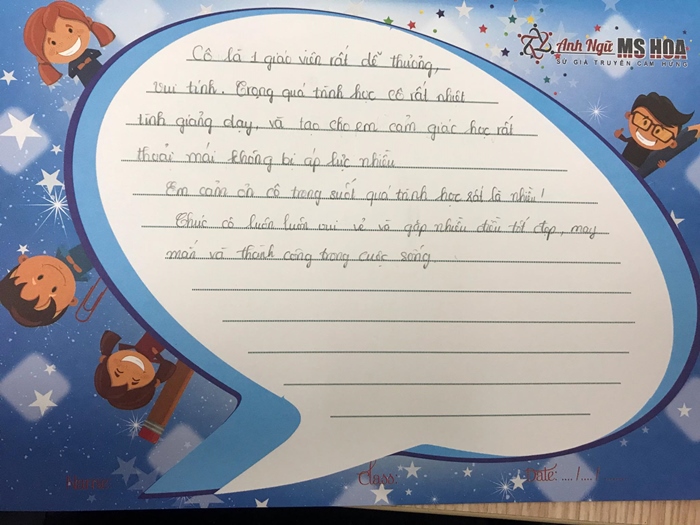 Anh Ngữ MS HOA
SỨ GIẢ TRUYỀN CẢM HỨNG
Cô là 1 giáo viên rất dễ thương,
vui tính. Trong quá trình học cô rất nhiệt
tình giảng dạy, và tạo cho em cảm giác học rất
thoải mái không bị áp lực nhiều
Em cảm ơn cô trong suốt quá trình học rất là nhiều!
Chúc cô luôn luôn vui vẻ và gặp nhiều điều tốt đẹp, may
mắn và thành công trong cuộc sống.
Name: Class: Date: ..../....